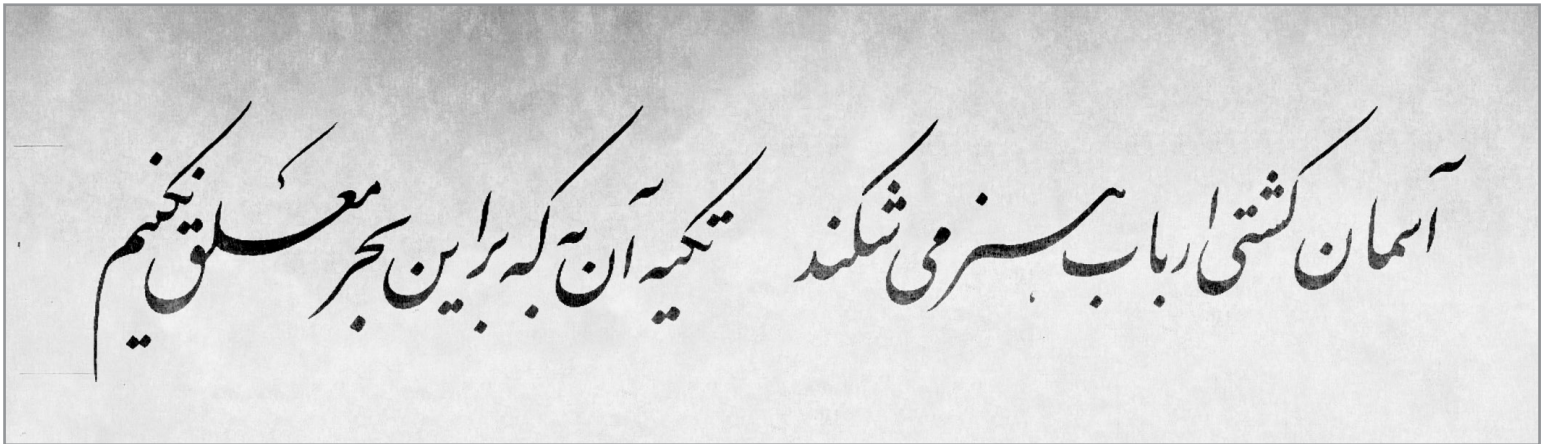 آسمان کشتی ارباب هنر می شکند تکیه آن به که بر این بحر معلق نکنیم